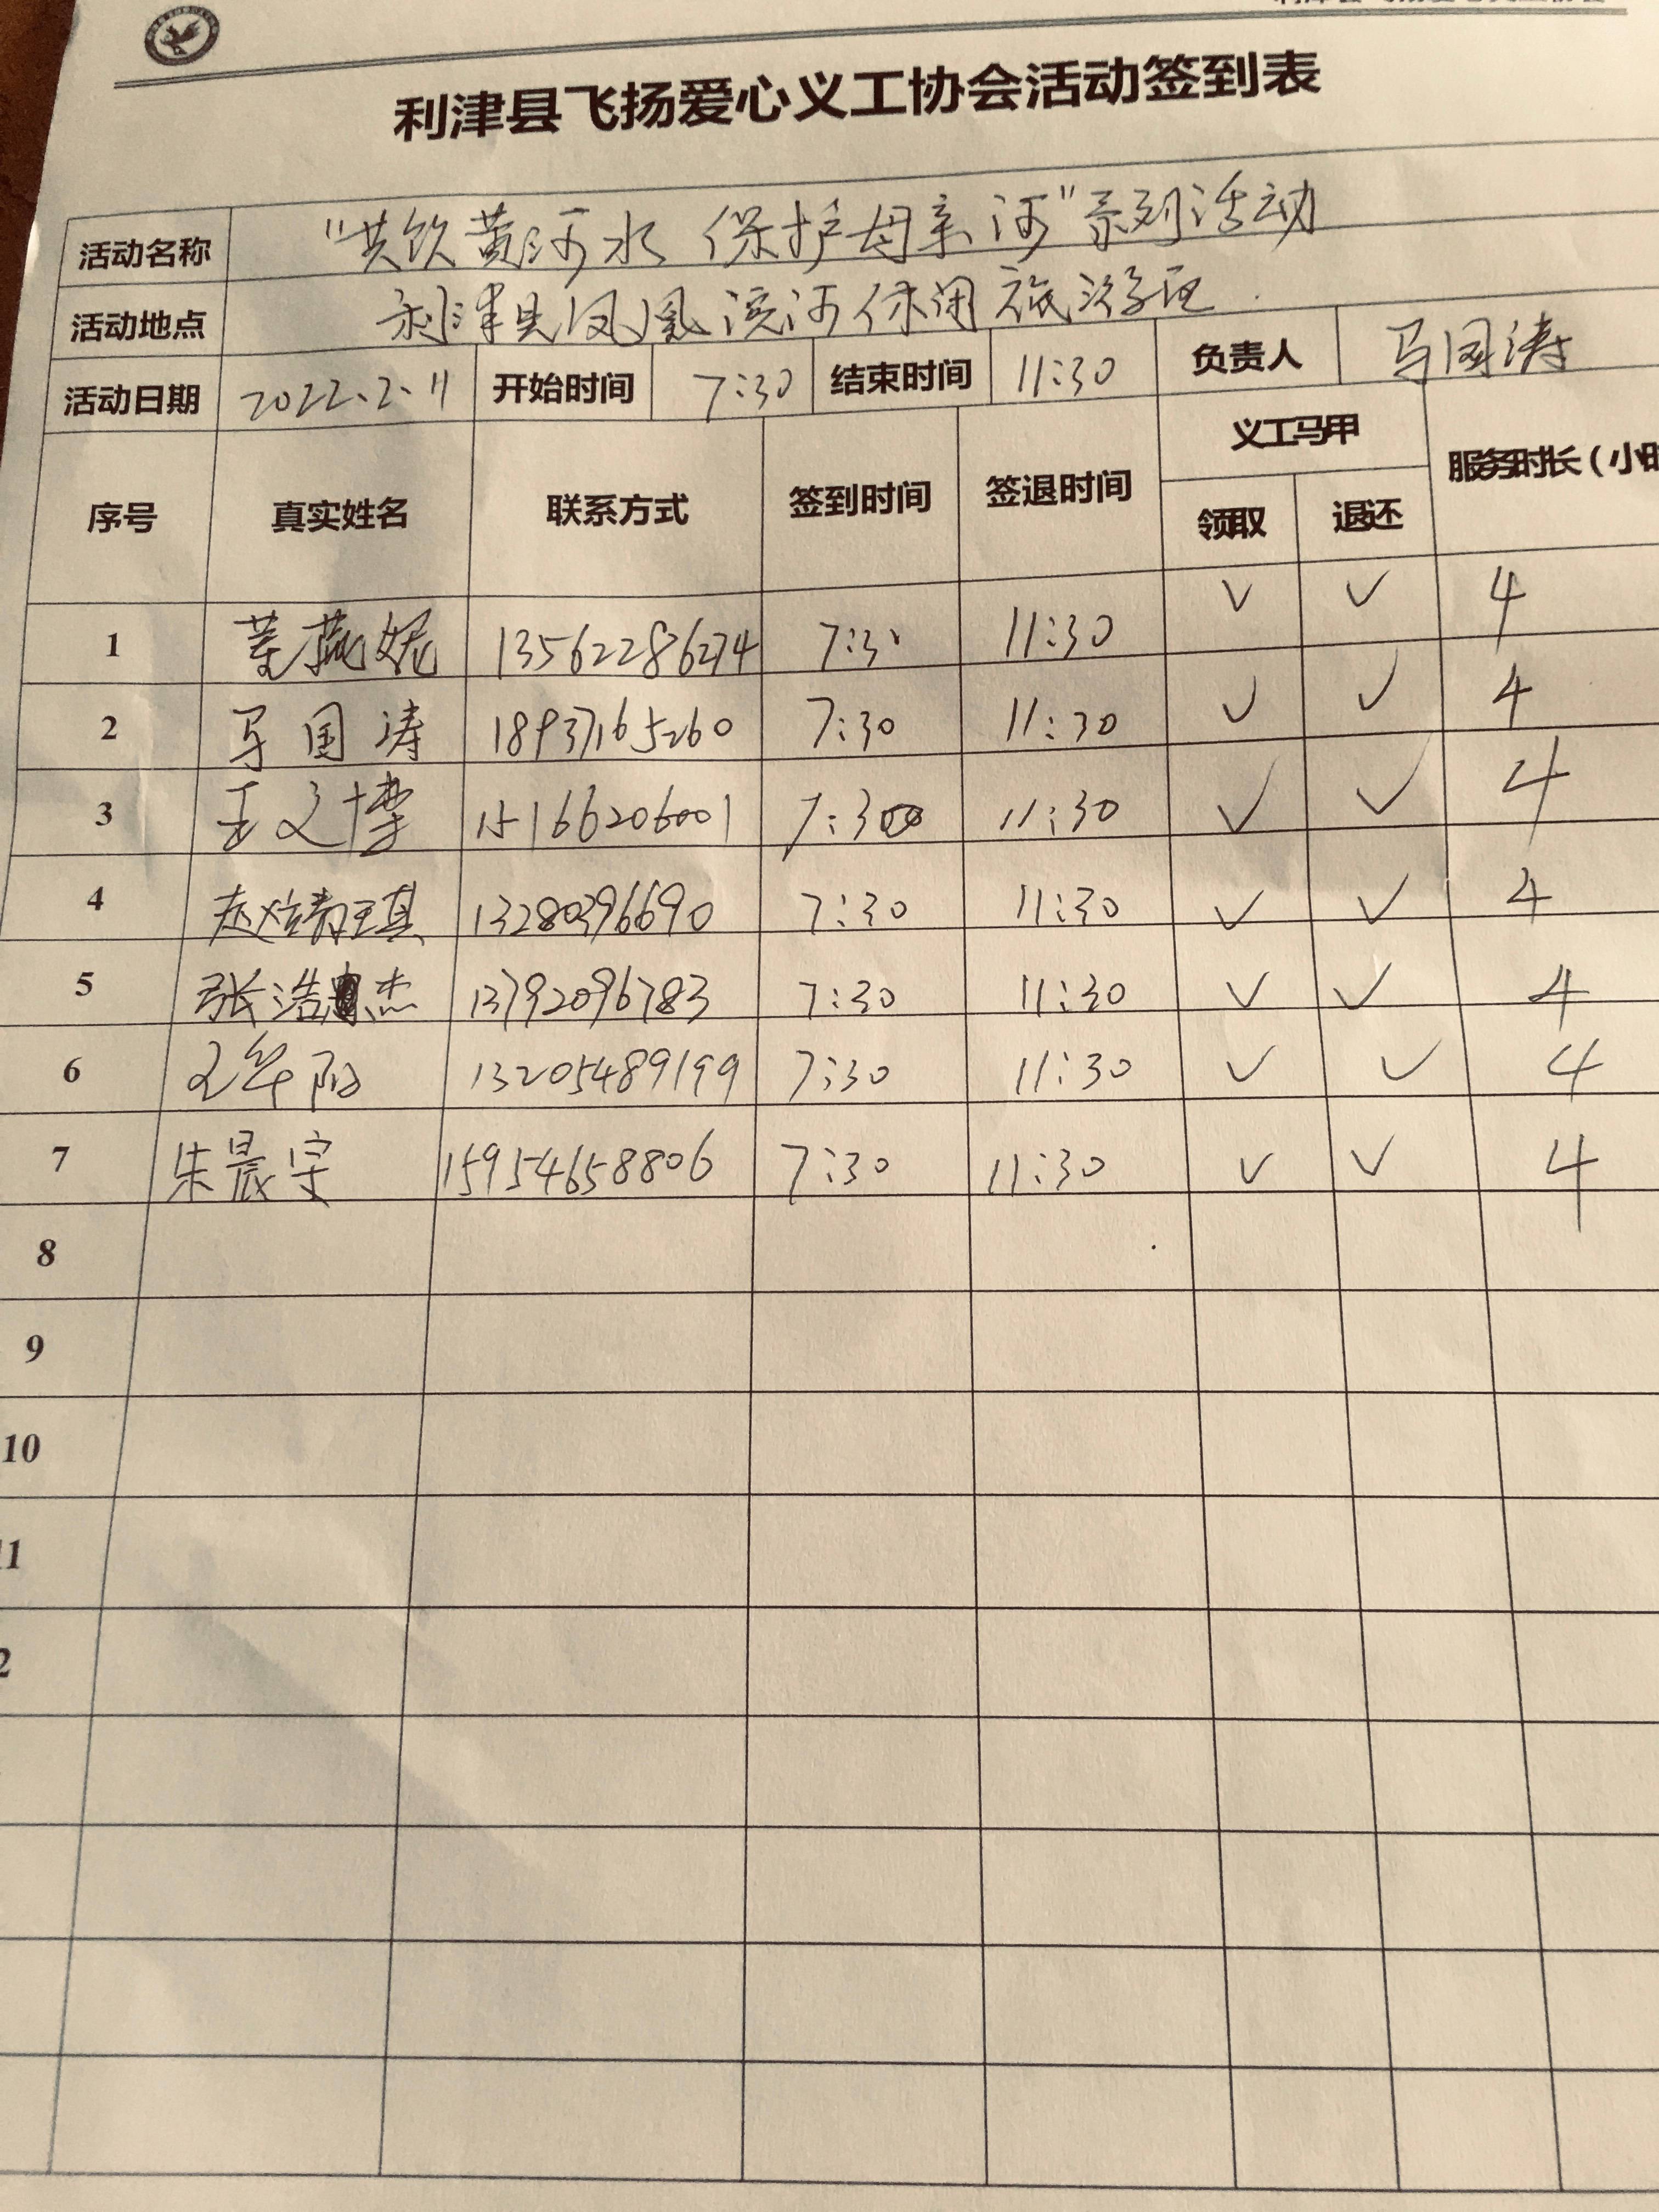 利津县飞扬爱心义工协会活动签到表
活动名称 "共饮黄河水 保护母亲河"系列活动
活动地点 利津县凤凰滨河休闲旅游区
活动日期 2022.2.11 开始时间 7:30 结束时间 11:30 负责人 马国涛
序号 真实姓名 联系方式 签到时间 签退时间 义工马甲 服务时长(小时
领取 退还
1 董燕妮 13562286274 7:30 11:30 ✓ ✓ 4
2 马国涛 18937165260 7:30 11:30 ✓ ✓ 4
3 王文博 15166206001 7:30 11:30 ✓ ✓ 4
4 13280396690 7:30 11:30 ✓ ✓ 4
5 张浩杰 13792096783 7:30 11:30 ✓ ✓ 4
6 13205489199 7:30 11:30 ✓ ✓ 4
7 朱晨宇 15954658806 7:30 11:30 ✓ ✓ 4
8
9
10
11
2